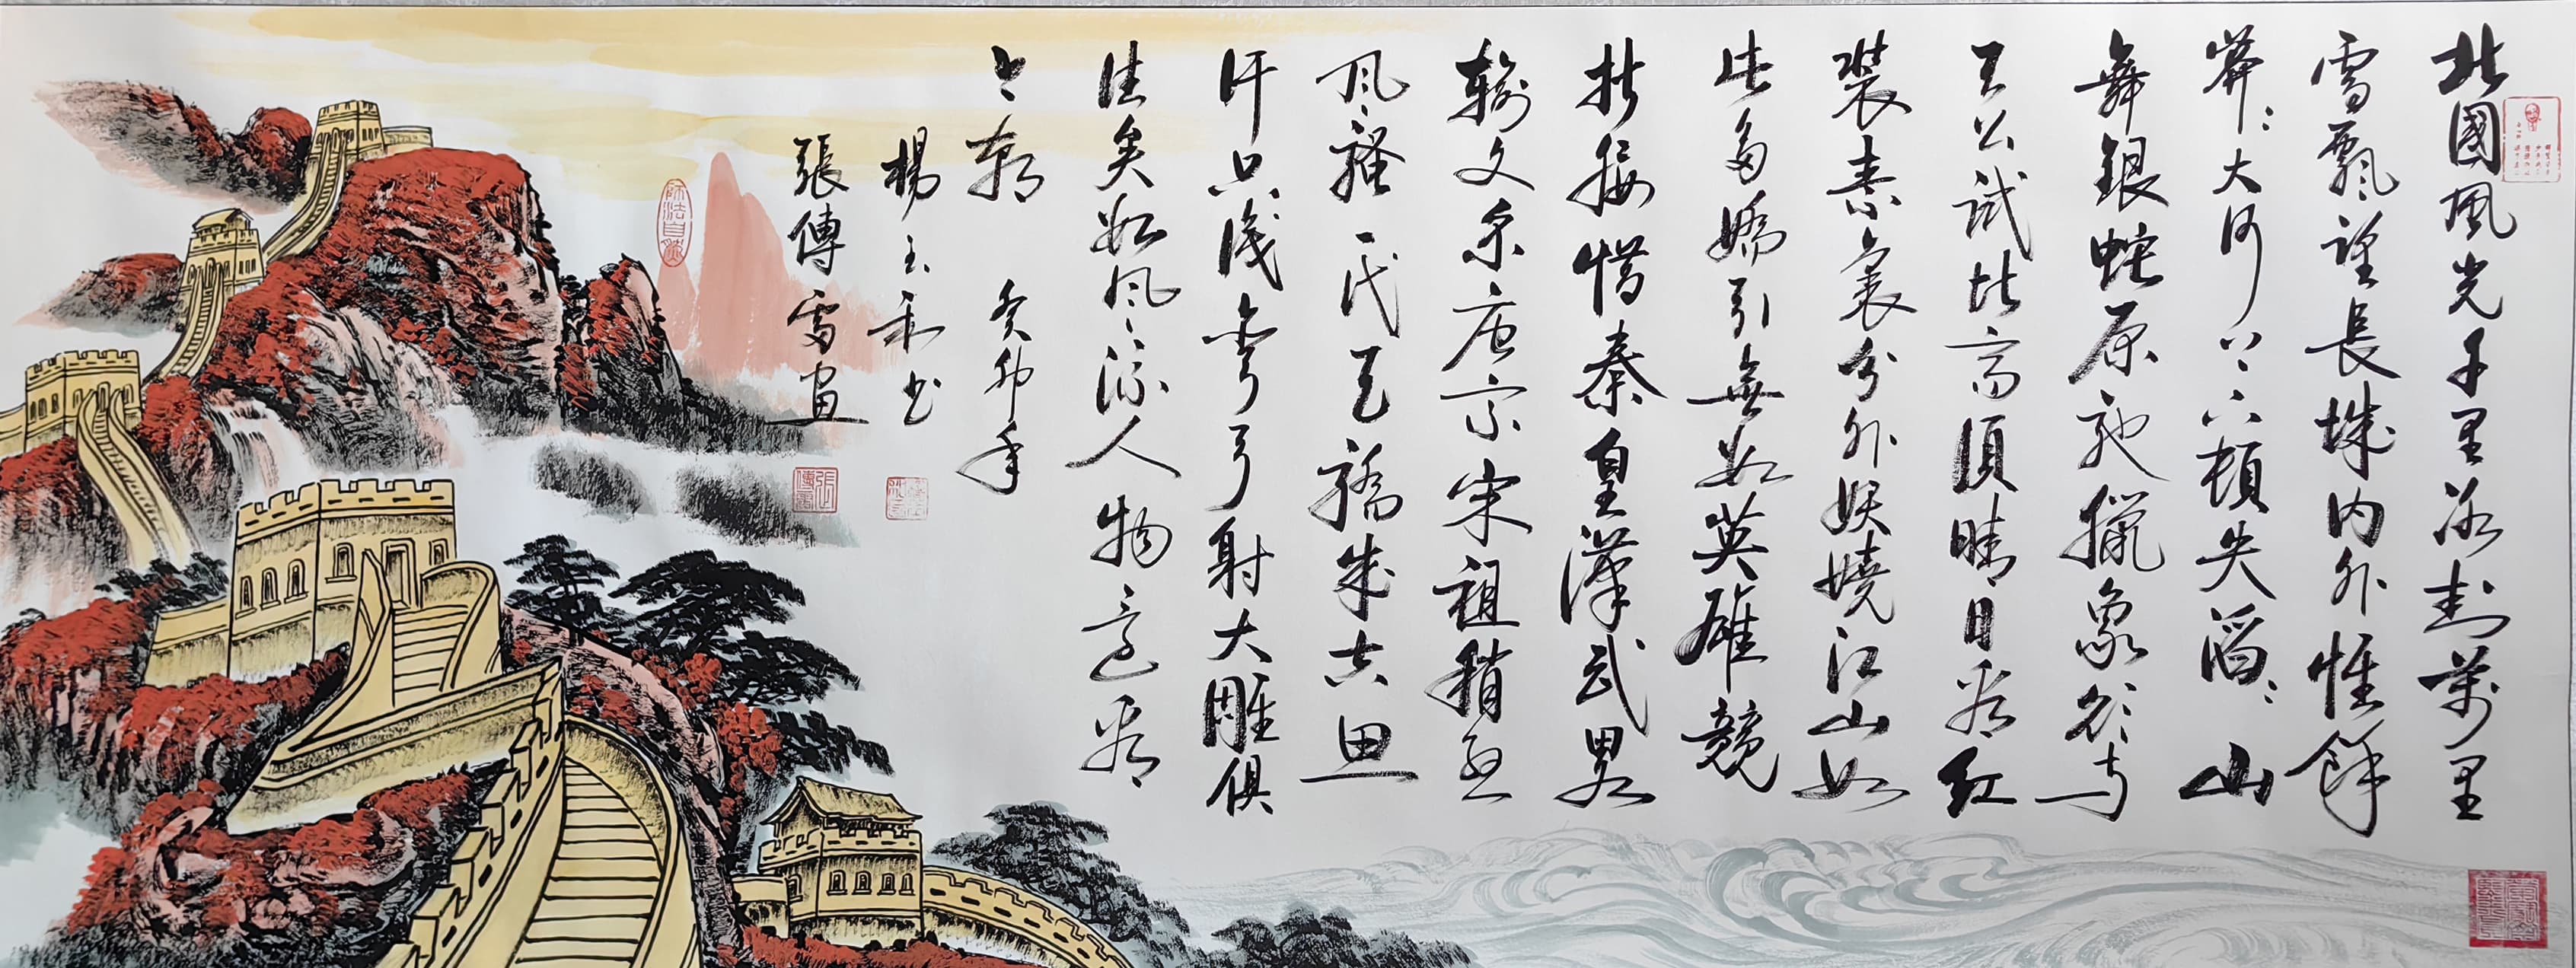 北國風光千里冰封萬里
雪飄望長城内外惟餘
莽〻大河上下頓失滔〻山
舞銀蛇原馳獵象欲与
天公試比高須晴日看紅
裝素裹分外妖嬈江山如
此多嬌引無數英雄競
折腰惜秦皇漢武畧
輸文采唐宗宋祖稍遜
風騷一代天驕成吉思
汗只識彎弓射大雕俱
往矣數風流人物還看
今朝 癸卯年
楊玉和书
張傳雪畫
師法自然
張傳雪